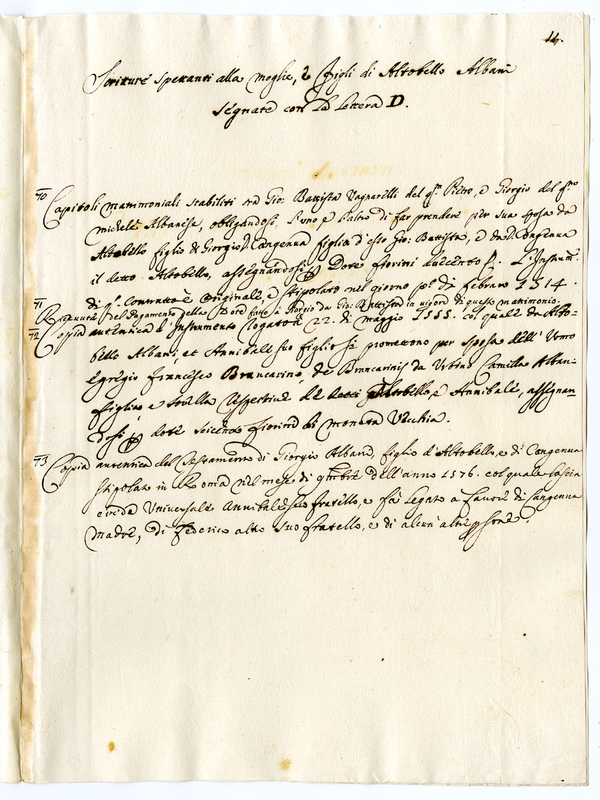 14.
Scritture spettanti alla moglie, e figli di Altobello Albani
segnate con la lettera D.
70 Capitoli matrimoniali stabiliti tra Gio: Battista Vagnarelli del qm. Pietro, e Giorgio del qmo
michele Albanese, obligandosi l'uno e l'altro di far prendere per sua sposa da
Altobello figlio di Giorgio, Cangenua figlia d'esso Gio: Battista, e da Cangenua
il detto Altobello, assegnandosi p Dote fiorini L'Instum.
di qo. Contratto è originale, e stipolato nel giorno po. di febraro 1514.
71 Ricevuta del Pagamento della Dote fatto à Giorgio da Gio: Battista in vigore di questo matrimonio.
72 Copia autentica d'Instumento rogato a 22. di maggio 1555. col quale da Alto-
bello Albani, et Annibale suo figlio si promettono per sposa dell'Uomo
Egregio francesco Brancarino de Brancarinis da Urbino Camilla Alban-
figlia, e sorella respettiva de detti Altobello, e Annibale, assegnan-
dosi p dote seicento fiorini di moneta Vecchia.
73 Copia autentica del Testamento di Giorgio Albani, figlio d'Altobello, e di Cangenua
stipolato in Roma nel mese di 9mbre dell'anno 1576. col quale lascia
erede Universale Annibale suo fratello, e fà legati a favore di Cangenua
madre, di federico altro suo fratello, e di alcun'altre psone.